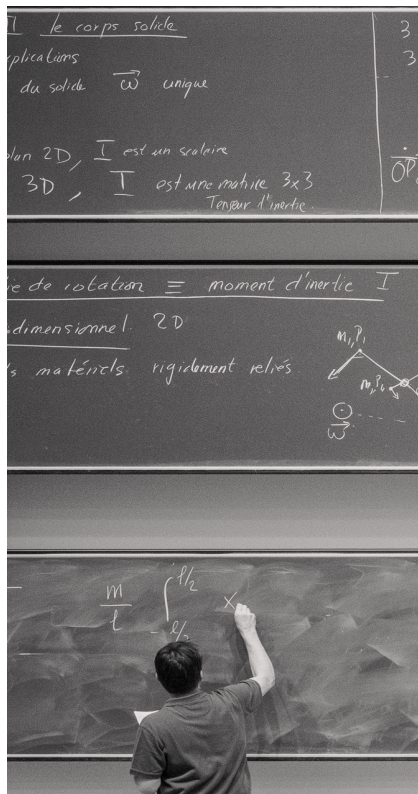 II le corps solide
plications
du solide ω unique
plan 2D, I est un scalaire
3D, I est une matrice 3x3
Tenseur d'inertie.
3
3
OP
ie de rotation ≡ moment d'inertie I
dimensionnel 2D
s matériels rigidement reliés
m₁,P₁
ω
m/l ∫ l/2 -l/2 x